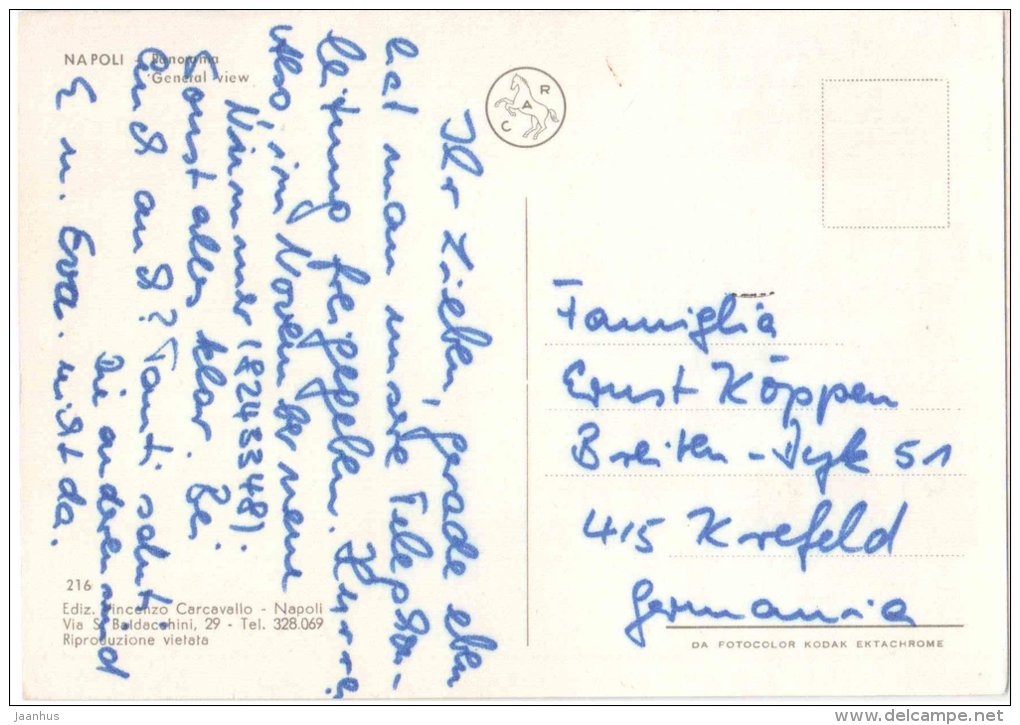 NAPOLI - Panorama
General view
CAR
Ihr Lieben, gerade eben
hat man unsere Telephon-
leitung freigegeben. Hurra!
Also, im November neue
Nummer (8243348).
Sonst alles klar. Bei
auch? Tanti saluti.
Die anderen sind
E u. Eva. nicht da.
Famiglia
Ernst Köppen
Breiten-Dyk 51
415 Krefeld
Germania
216
Ediz. Vincenzo Carcavallo - Napoli
Via S. Baldacchini, 29 - Tel. 328.069
Riproduzione vietata
DA FOTOCOLOR KODAK EKTACHROME
Jaanhus
www.delcampe.net